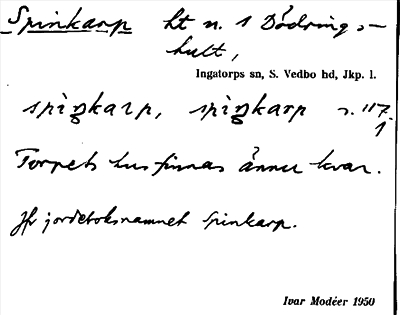 Spinkarp ht n. 1 Bödrings-
hult,
Ingatorps sn, S. Vedbo hd, Jkp. l.
spìŋkarp, spìŋkarp s. 117
j
Torpets hus finnas ännu kvar.
Jfr jordeboksnamnet Spinkarp.
Ivar Modéer 1950